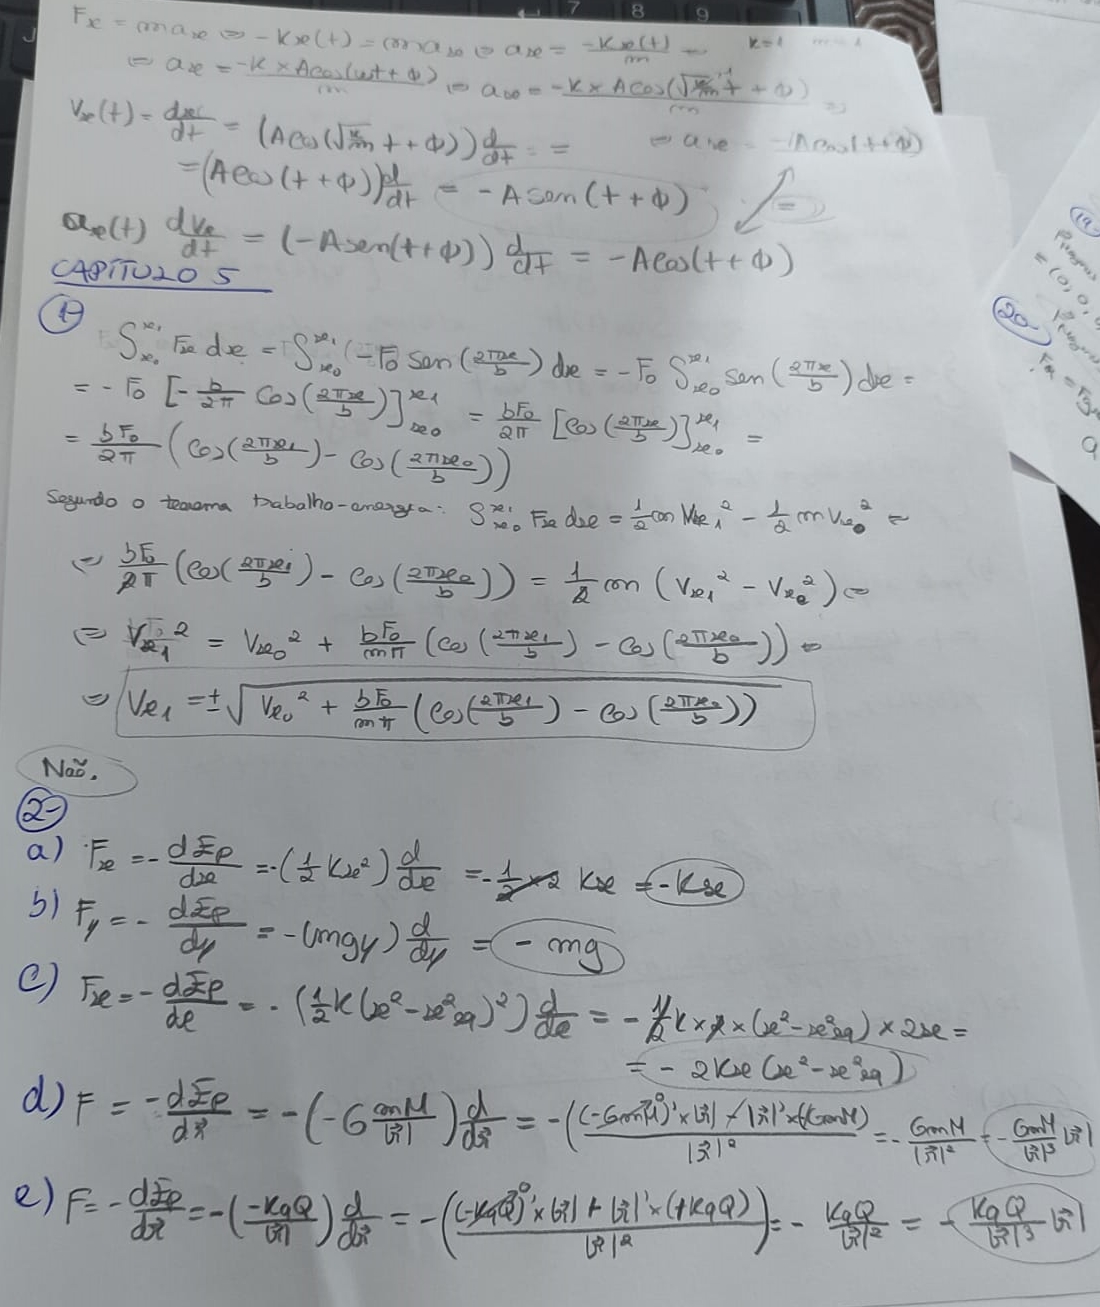 7 8 9
Fx = max ⇔ -Kx(t) = max ⇔ ax = -Kx(t)/m k=1 m=1
⇔ ax = -K × Acos(ωt + Φ)/m ⇔ ax = -K × Acos(√(k/m) t + Φ)/m ⇔
Vx(t) = dx/dt = (Acos(√(k/m) t + Φ)) d/dt = ⇔ ax = -Acos(t + Φ)
= (Acos(t + Φ)) d/dt = -Asen(t + Φ) =
ax(t) dVx/dt = (-Asen(t + Φ)) d/dt = -Acos(t + Φ)
CAPÍTULO 5
1-
∫x₀^x₁ Fx dx = ∫x₀^x₁ (-F₀ sen(2πx/b) dx = -F₀ ∫x₀^x₁ sen(2πx/b) dx =
= -F₀ [-b/2π cos(2πx/b)]x₀^x₁ = bF₀/2π [cos(2πx/b)]x₀^x₁ =
= bF₀/2π (cos(2πx₁/b) - cos(2πx₀/b))
Segundo o teorema trabalho-energia: ∫x₀^x₁ Fx dx = 1/2 m Vx₁² - 1/2 m Vx₀² ⇔
⇔ bF₀/2π (cos(2πx₁/b) - cos(2πx₀/b)) = 1/2 m (Vx₁² - Vx₀²) ⇔
⇔ Vx₁² = Vx₀² + bF₀/mπ (cos(2πx₁/b) - cos(2πx₀/b)) ⇔
⇔ Vx₁ = ±√(Vx₀² + bF₀/mπ (cos(2πx₁/b) - cos(2πx₀/b)))
Não.
2-
a) Fx = - dEp/dx = -(1/2 Kx²) d/dx = -1/2 × 2 Kx = -Kx
b) Fy = - dEp/dy = -(mgy) d/dy = - mg
c) Fx = - dEp/dx = - (1/2 K(x² - x²eq)²) d/dx = -1/2 K × 2 × (x² - x²eq) × 2x =
= - 2Kx (x² - x²eq)
d) F = - dEp/dr⃗ = -(-G mM/|r⃗|) d/dr⃗ = -((-GmM)' × |r⃗| - |r⃗|' × (-GmM)/|r⃗|²) = - GmM/|r⃗|² = - GmM/|r⃗|³ |r⃗|
e) F = - dEp/dr⃗ = -(-KqQ/|r⃗|) d/dr⃗ = -((-KqQ)' × |r⃗| + |r⃗|' × (+KqQ)/|r⃗|²) = - KqQ/|r⃗|² = - KqQ/|r⃗|³ |r⃗|
19-
20-